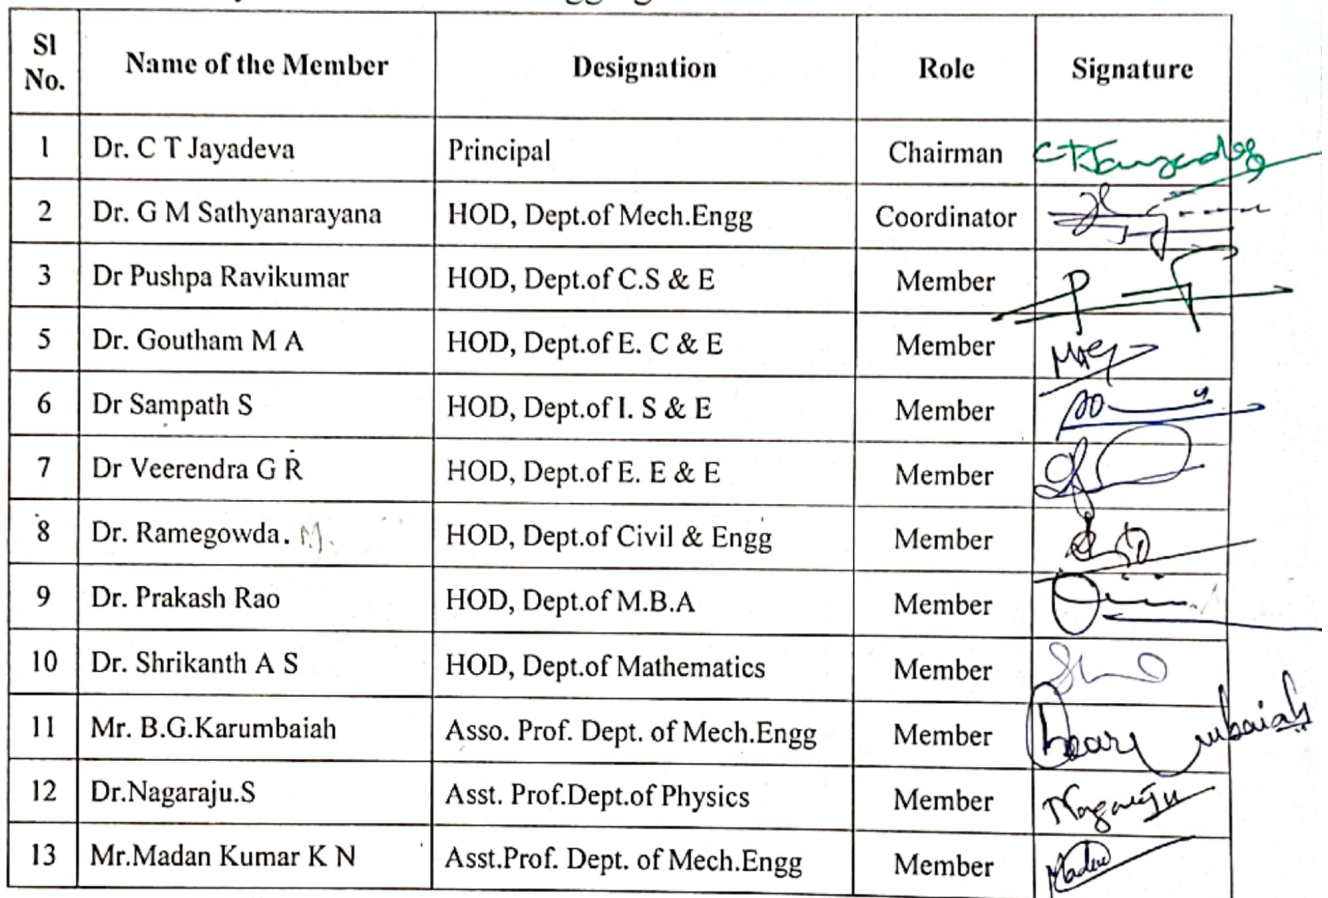 Sl No. Name of the Member Designation Role Signature
1 Dr. C T Jayadeva Principal Chairman CTJayadeva
2 Dr. G M Sathyanarayana HOD, Dept.of Mech.Engg Coordinator
3 Dr Pushpa Ravikumar HOD, Dept.of C.S & E Member
5 Dr. Goutham M A HOD, Dept.of E. C & E Member
6 Dr Sampath S HOD, Dept.of I. S & E Member
7 Dr Veerendra G R HOD, Dept.of E. E & E Member
8 Dr. Ramegowda. M. HOD, Dept.of Civil & Engg Member
9 Dr. Prakash Rao HOD, Dept.of M.B.A Member
10 Dr. Shrikanth A S HOD, Dept.of Mathematics Member
11 Mr. B.G.Karumbaiah Asso. Prof. Dept. of Mech.Engg Member
12 Dr.Nagaraju.S Asst. Prof.Dept.of Physics Member Nagaraju
13 Mr.Madan Kumar K N Asst.Prof. Dept. of Mech.Engg Member